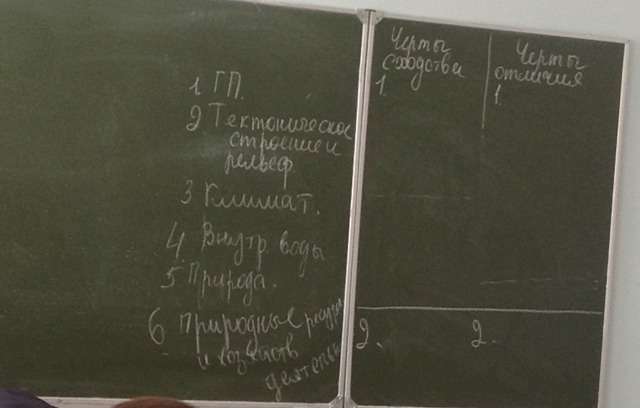 1 ГП.
2 Тектоническое
строение и
рельеф
3 Климат.
4 Внутр. воды
5 Природа.
6 Природные
и хозяйств
Черты
сходства
1
Черты
отличия
1.
2.
2.